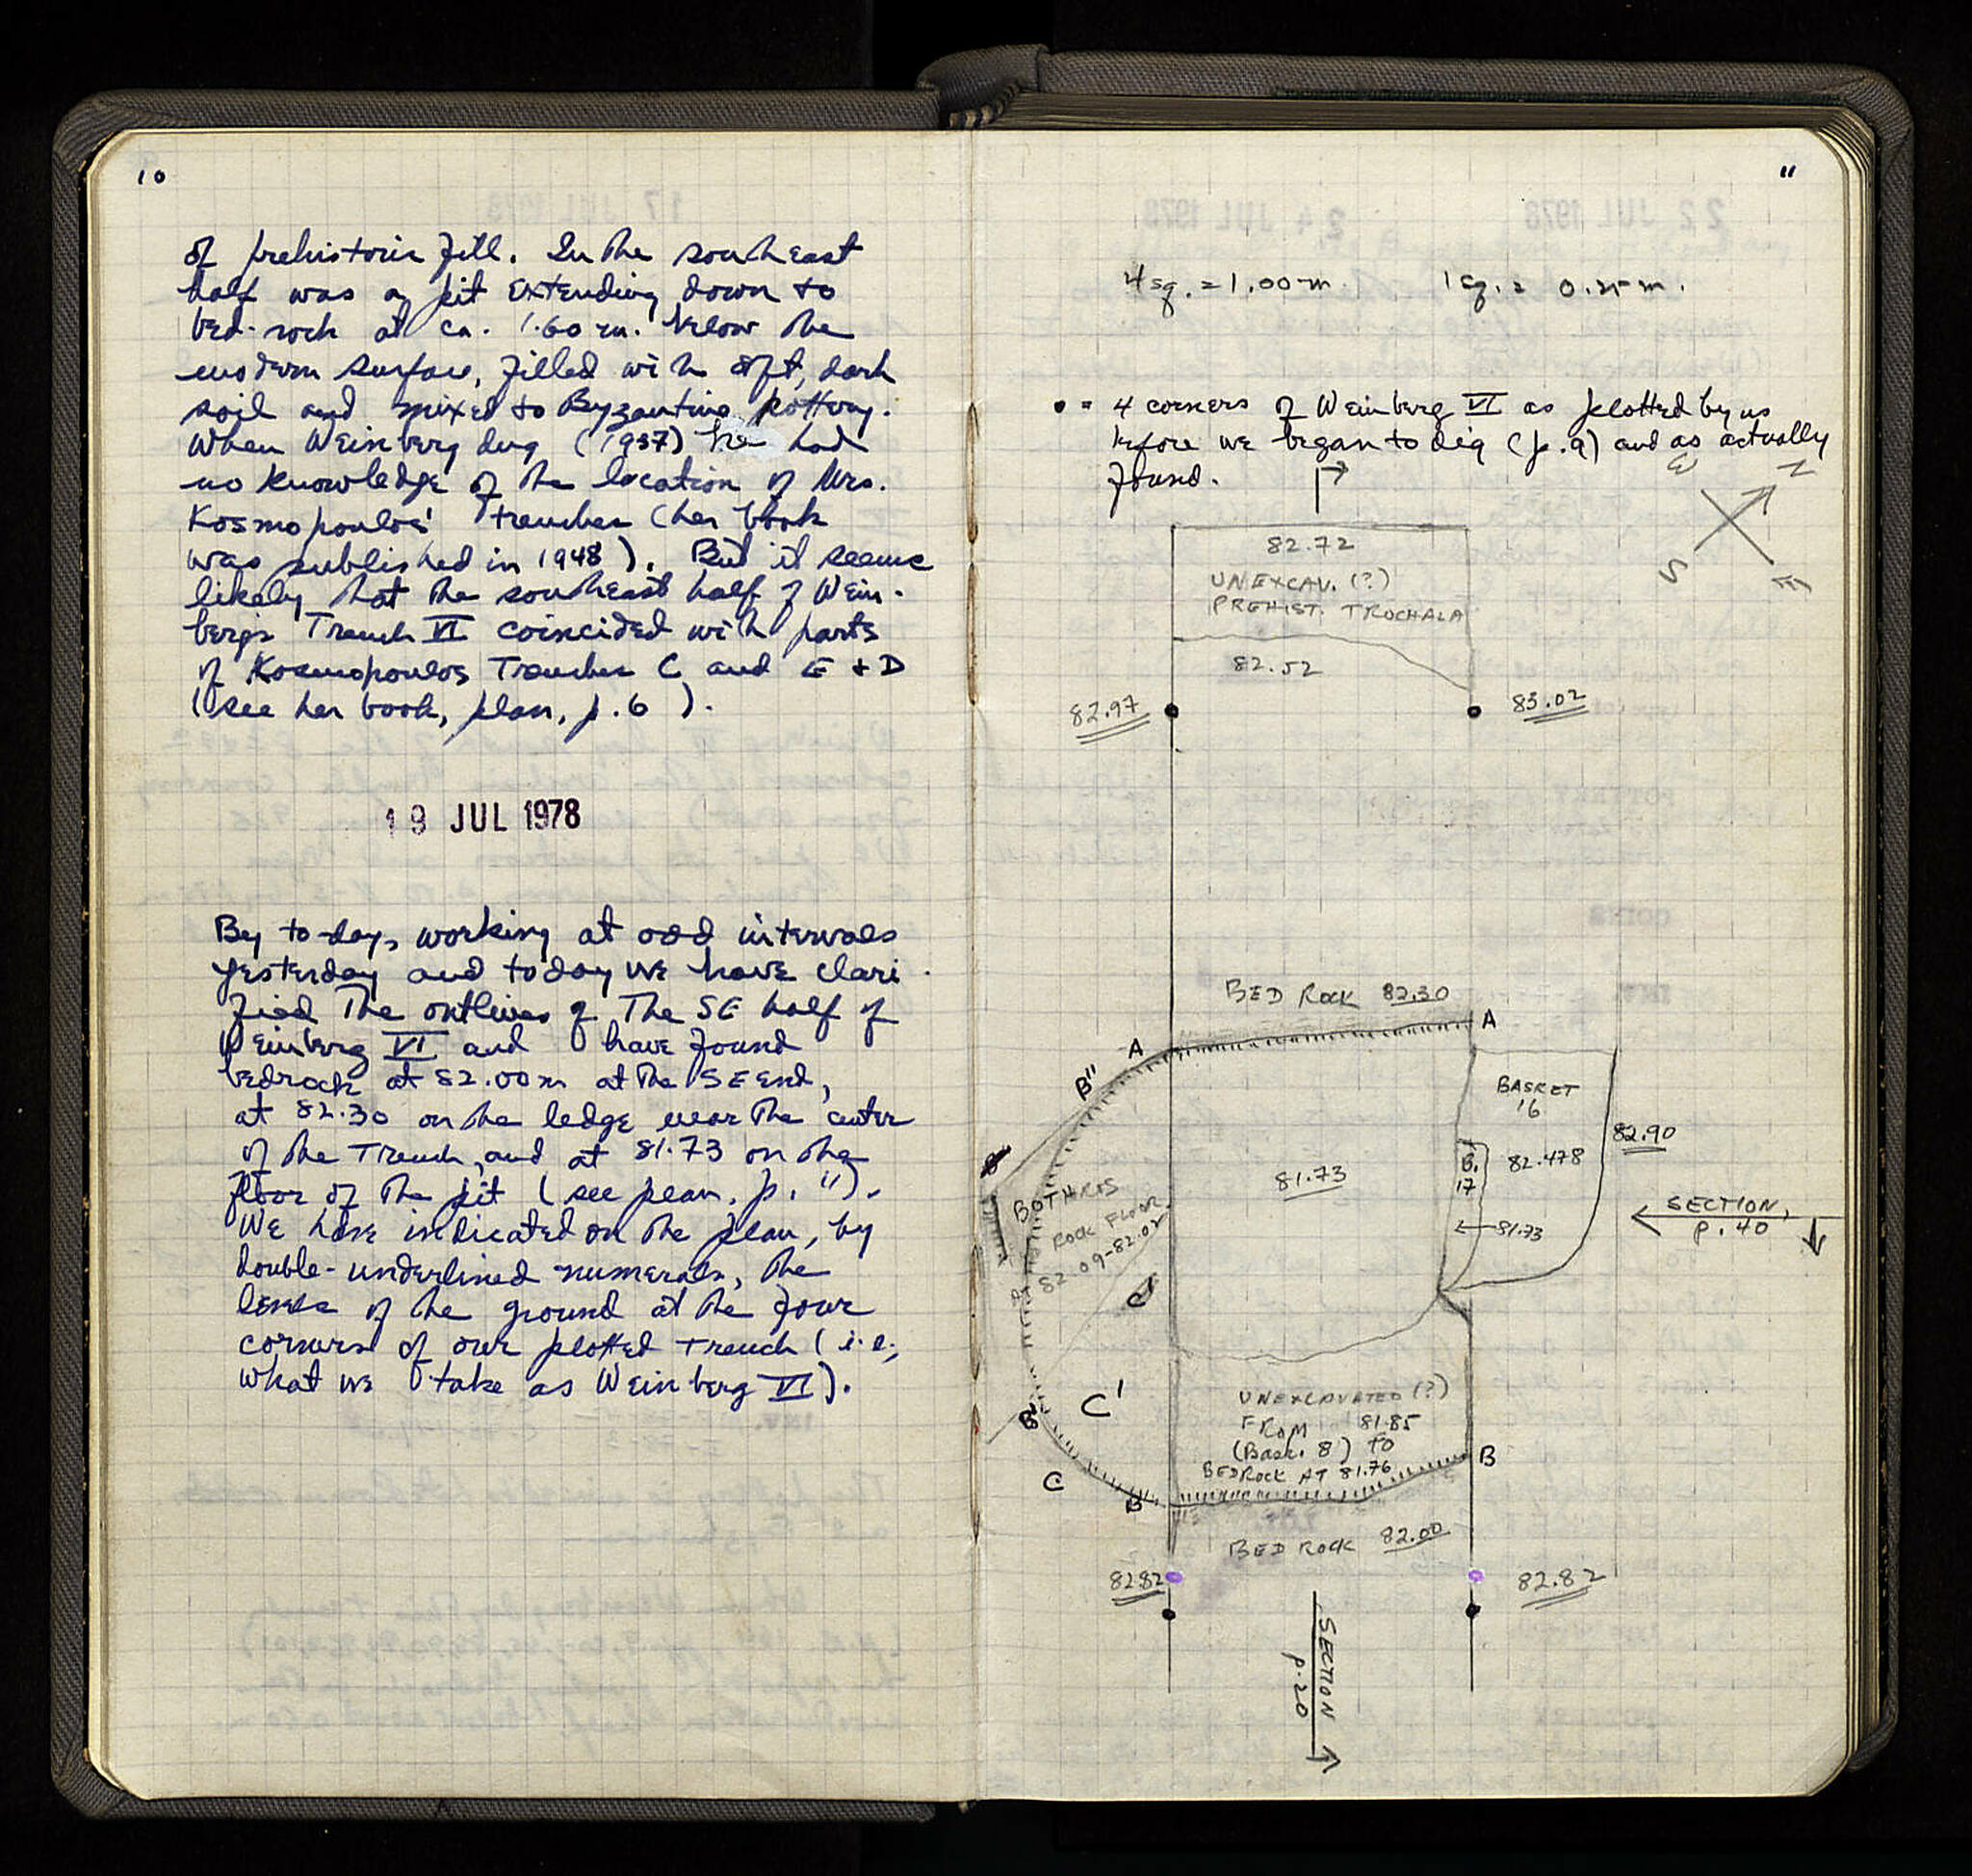 10
of prehistoric fill. In the southeast
half was a pit extending down to
bed-rock at ca. 1.60 m. below the
modern surface, filled with soft, dark
soil and mixed to Byzantine pottery.
When Weinberg dug (1937) he had
no knowledge of the location of Mrs.
Kosmopoulos' trenches (her book
was published in 1948). But it seems
likely that the southeast half of Wein-
berg's Trench VI coincided with parts
of Kosmopoulos Trenches C and E + D
(see her book, plan, p. 6).
19 JUL 1978
By to-day, working at odd intervals
yesterday and today we have clari-
fied the outlines of the SE half of
Weinberg VI and have found
bedrock at 82.00 m at the SE end,
at 82.30 on the ledge near the center
of the Trench, and at 81.73 on the
floor of the pit (see plan, p. 11).
We have indicated on the plan, by
double-underlined numerals, the
levels of the ground at the four
corners of our plotted trench (i.e.,
what we take as Weinberg VI).
11
22 JUL 1978
24 JUL 1978
17 JUL 1978
4 sq. = 1.00 m. 1 sq. = 0.25 m.
• = 4 corners of Weinberg VI as plotted by us
before we began to dig (p. 9) and as actually
found.
W N
S E
82.72
UNEXCAV. (?)
PREHIST. TROCHALA
82.52
82.97
83.02
BED ROCK 82.30
A
A
B"
BASKET
16
82.90
B.
17
82.478
81.73
81.73
SECTION,
p. 40
BOTHROS
ROCK FLOOR
82.09-82.02
C'
C'
B'
UNEXCAVATED (?)
FROM 81.85
(Bask. 8) to
BEDROCK AT 81.76
B
C
B
BED ROCK 82.00
82.82
82.82
SECTION
p. 20